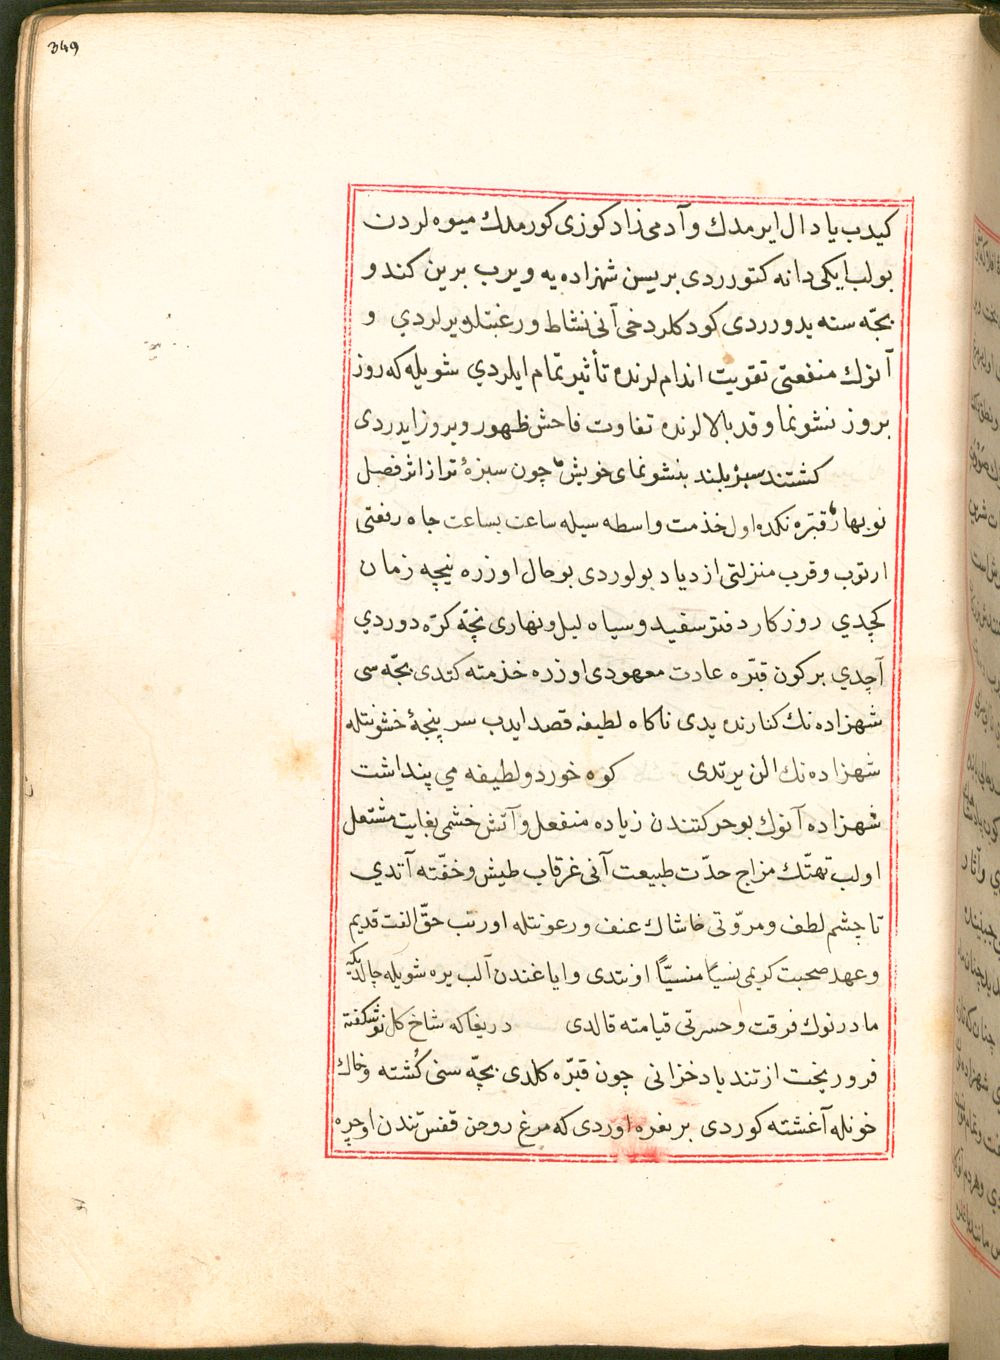 349
كيدب يا دال ايرمدك و آدمى زاد كوزى كورمدك ميوه لردن
بولب ايكى دانه كتورردى بريسن شهزاده يه ويرب برين كندو
بچّه سنه يدورردى كودكلر دخى آنى نشاط و رغبتله يرلردي و
آنوك منفعتى تقويت اندام لرنده تأثير تمام ايلردي شويله كه روز
بروز نشو نما و قد بالا لرنده تفاوت فاحش ظهور و بروز ايدردى
كشتند سبز بلند بنشو نماى خويش چون سبزهٔ تر از اثر فصل
نو بهار قبّره نكده اول خذمت واسطه سيله ساعت بساعت جاه رفعتى
ارتوب و قرب منزلتى ازدياد بولوردى بو حال اوزره نيچه زمان
كچدي روزكار دفتر سفيد و سياه ليل و نهارى نچّه كرّه دوردي
آچدي بر كون قبّره عادت معهودى اوزره خذمته كتدى بچّه سى
شهزاده نك كنارنده يدى ناكاه لطيفه قصد ايدب سر پنجهٔ خشونتله
شهزاده نك الن يرتدى كوه خورد و لطيفه مي پنداشت
شهزاده آنوك بو حركتندن زياده منفعل و آتش خشمى بغايت مشتعل
اولب تهتّك مزاج حدّت طبيعت آنى غرقاب طيش و خفّته آتدي
تا چشم لطف و مروّتى خاشاك عنف و رعونتله اورتب حقّ الفت قديم
و عهد صحبت كريمى نسيًا منسيًّا اونتدى و اياغندن آلب يره شويله چالدى كه
مادرنوك فرقت و حسرتى قيامته قالدى دريغا كه شاخ كل نو شكفته
فرو ريخت از تند باد خزانى چون قبّره كلدى بچّه سنى كُشته و خاك
خونله آغشته كوردى بر نعره اوردى كه مرغ روحن قفس تندن اوچره